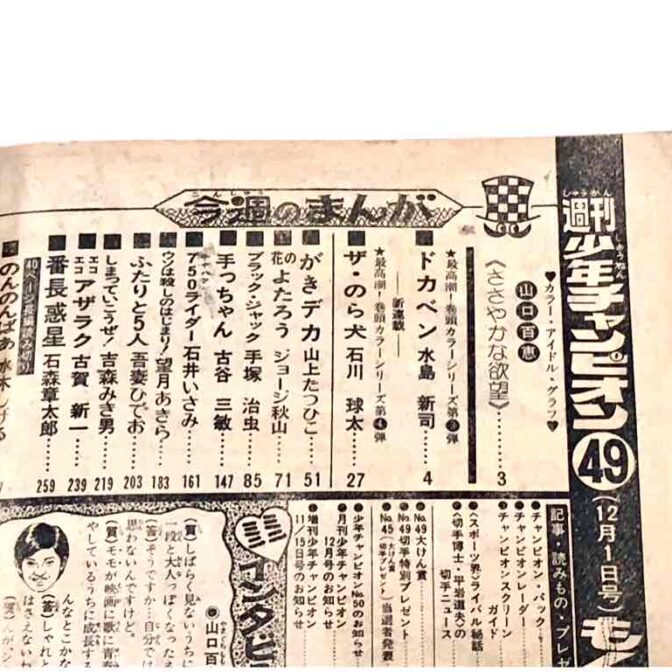 週刊少年チャンピオン 49 (12月1日号) も
♥カラー・アイドル・グラフ♥
山口百恵
《ささやかな欲望》……3
今週のまんが
★最高潮!巻頭カラーシリーズ第③弾
ドカベン 水島新司……4
—新連載—
★最高潮!巻頭カラーシリーズ第④弾
ザ・のら犬 石川球太……27
がきデカ 山上たつひこ…51
花のよたろう ジョージ秋山 71
ブラック・ジャック 手塚治虫 85
手っちゃん 古谷三敏 147
750ライダー 石井いさみ 161
ウソは殺しのはじまり! 望月あきら 183
ふたりと5人 吾妻ひでお 203
しまっていこうぜ! 吉森みき男 219
エコエコアザラク 古賀新一 239
番長惑星 石森章太郎 259
のんのんばあ 水木しげる
記事・読みもの・プレ
●チャンピオン・パック
●チャンピオンレーダー
●チャンピオンスクリーンガイド
●〈スポーツ界〉ライバル秘話
●〈切手博士・平岩道夫〉の切手ニュース
●No.49大けん賞
●No.49切手特別プレゼント
●No.45(切手プレゼント)当選者発表
●少年チャンピオンNo.50のお知らせ
●月刊少年チャンピオン12月号のお知らせ
●増刊少年チャンピオン11/15日号のお知らせ
インタビ
●山口百
(質)しばらく見ないうちに
一段と大人っぽくなったネ
(答)そうですか…自分では
思わないんですけど。
(質)モモが映画に歌に青春
やしているうちに成長する
んなとこかな
(答)しゃれと